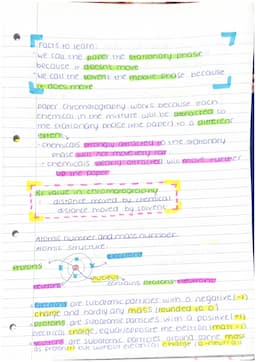 Facts to learn:
*we call the paper the stationary phase
because it doesn't move
*we call the solvent the mobile phase because
it does move
paper chromatography works because each
chemical in the mixture will be attracted to
the stationary phase (the paper) to a different
extent
· chemicals strongly attracted to the stationary
phase will not move very far
· chemicals weakly attracted will move further
up the paper
Rf value in chromatography
distance moved by chemical
distance moved by solvent
Atomic number and mass number:
Atomic structure:
protons
nucleus
contains protons + neutrons
electrons are subatomic particles with a negative (-1)
charge and hardly any mass (rounded to 0)
protons are subatomic particles with a positive (+1)
electrical charge, equal/opposite the electron (mass = 1)
neutrons are subatomic particles around same mass
as proton but without electrical charge (0/neutral)